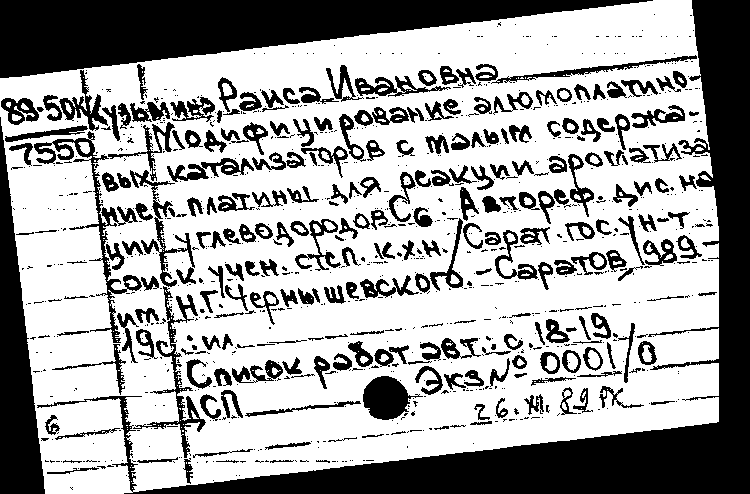 89-50К Кузьмина, Раиса Ивановна
7550 Модифицирование алюмоплатино-
вых катализаторов с малым содержа-
нием платины для реакции ароматиза
ции углеводородов С6: Автореф. дис. на
соиск. учен. степ. к.х.н. / Сарат. гос. ун-т
им. Н.Г. Чернышевского. - Саратов, 1989 -
19с.: ил.
Список работ авт.: с. 18-19.
Экз № 0001/0
ДСП
6
26. XII. 89 РК